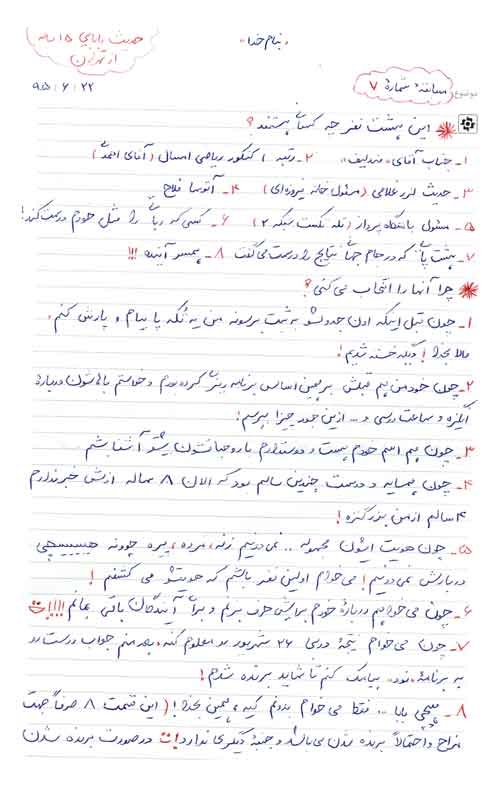 حدیث بابایی ۱۵ ساله
از تهران
بنام خدا
موضوع
مسابقهٔ شمارهٔ ۷
۹۵/۶/۲۲
این هشت نفر چه کسانی هستند؟
۱- جناب آقای ۲- رتبه ۱ کنکور ریاضی امسال (آقای احمدی)
۳- حدیث (مسئول خانه فیروزه‌ای) ۴- آتوسا فلاح
۵- مسئول باشگاه پرواز (تله تکست شبکه ۲) ۶- کسی که رباتی را مثل خودم درست کند!
۷- هشت پایی که در جام جهانی نتایج را درست می‌گفت ۸- همسر آینده !!!
چرا آنها را انتخاب می‌کنی؟
۱- چون قبل اینکه اون خودشو به ثبت برسونه من یه تکه پا بیام و پارش کنم.
والا بخدا! دیگه خسته شدیم!
۲- چون خودمن هم قبلش بر همین اساس برنامه ریزی کرده بودم و خواستم باهاشون درباره
انگیزه و ساعت درسی و... ازین جور چیزا بپرسم!
۳- چون هم اسم خودم هست و دوستدارم با روحیاتشون بیشتر آشنا بشم
۴- چون همسایه و دوست چندین سالم بود که الان ۸ ساله ازش خبر ندارم
۴ سالم از من بزرگتره!
۵- چون هویت ایشون مجهوله .. نمی‌دونیم زنه، مرده، پیره جوونه هیییییچی
دربارش نمی‌دونیم! می‌خوام اولین نفر باشم که هویتشو می کشفم!
۶- چون می‌خواهیم دربارهٔ خودم برایش حرف بزنم و برای آیندگان باقی بمانم!!!!
۷- چون می‌خوام نتیجهٔ درسی ۲۶ شهریور رو معلوم کنه، بعد منم جواب درست رو
به برنامهٔ نود پیامک کنم تا شاید برنده شدم!
۸- هیچی بابا ... فقط می‌خوام بدونم کیه، همین بخدا! (این قسمت ۸ صرفاً جهت
مزاح و احتمالاً برنده شدن می‌باشد و جنبهٔ دیگری ندارد) در صورت برنده شدن